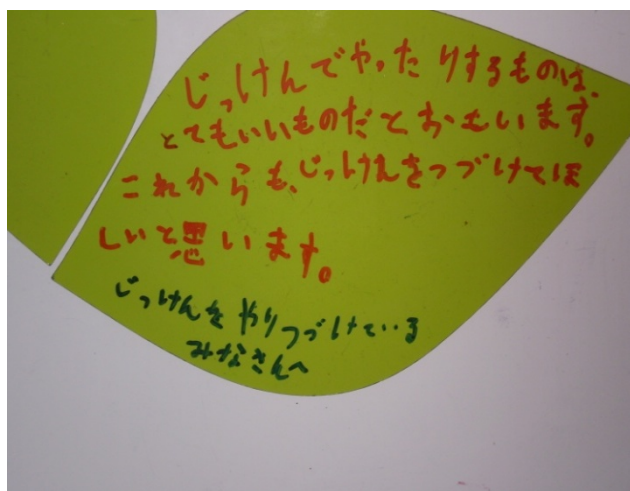 じっけんでやったりするものは、
とてもいいものだとおもいます。
これからも、じっけんをつづけてほ
しいと思います。
じっけんをやりつづけている
みなさんへ